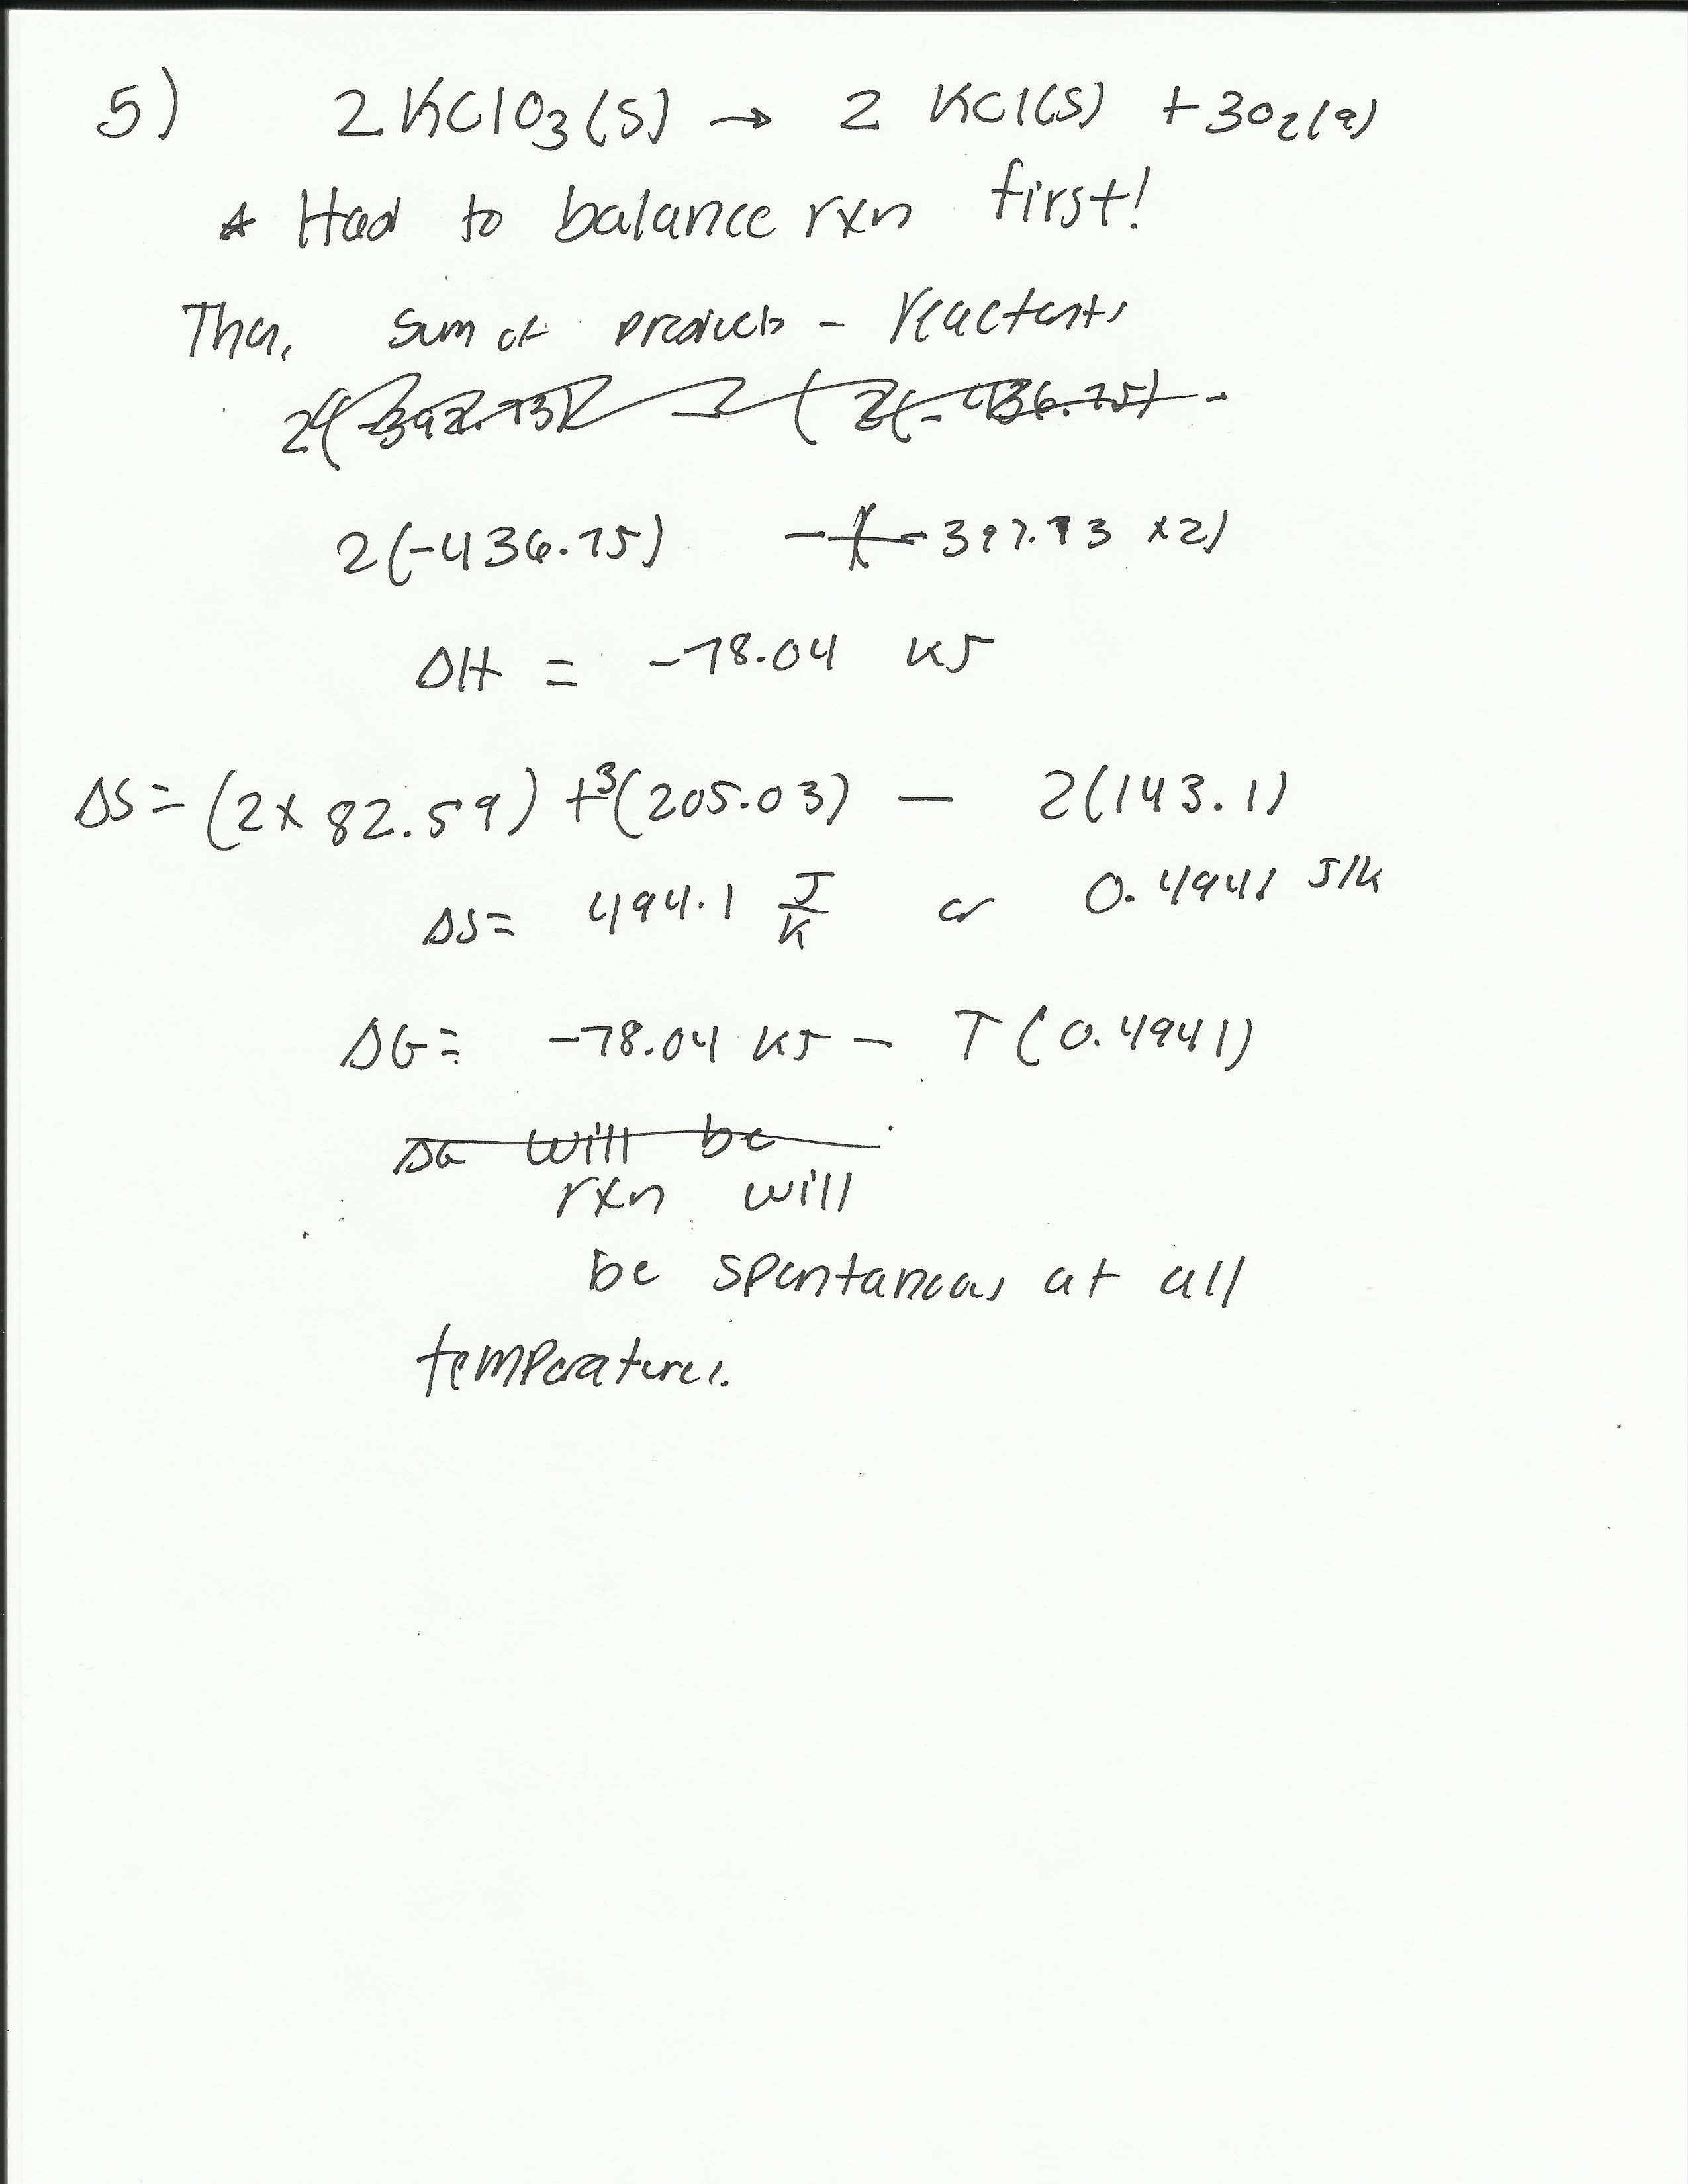 5) 2 KClO3(s) → 2 KCl(s) + 3O2(g)
* Had to balance rxn first!
Then, sum of products - reactants
2(-436.75) - (-397.73 x2)
ΔH = -78.04 kJ
ΔS= (2x 82.59) +3(205.03) - 2(143.1)
ΔS= 494.1 J/K or 0.4941 J/K
ΔG= -78.04 kJ - T(0.4941)
ΔG will be
rxn will
be spontaneous at all
temperatures.